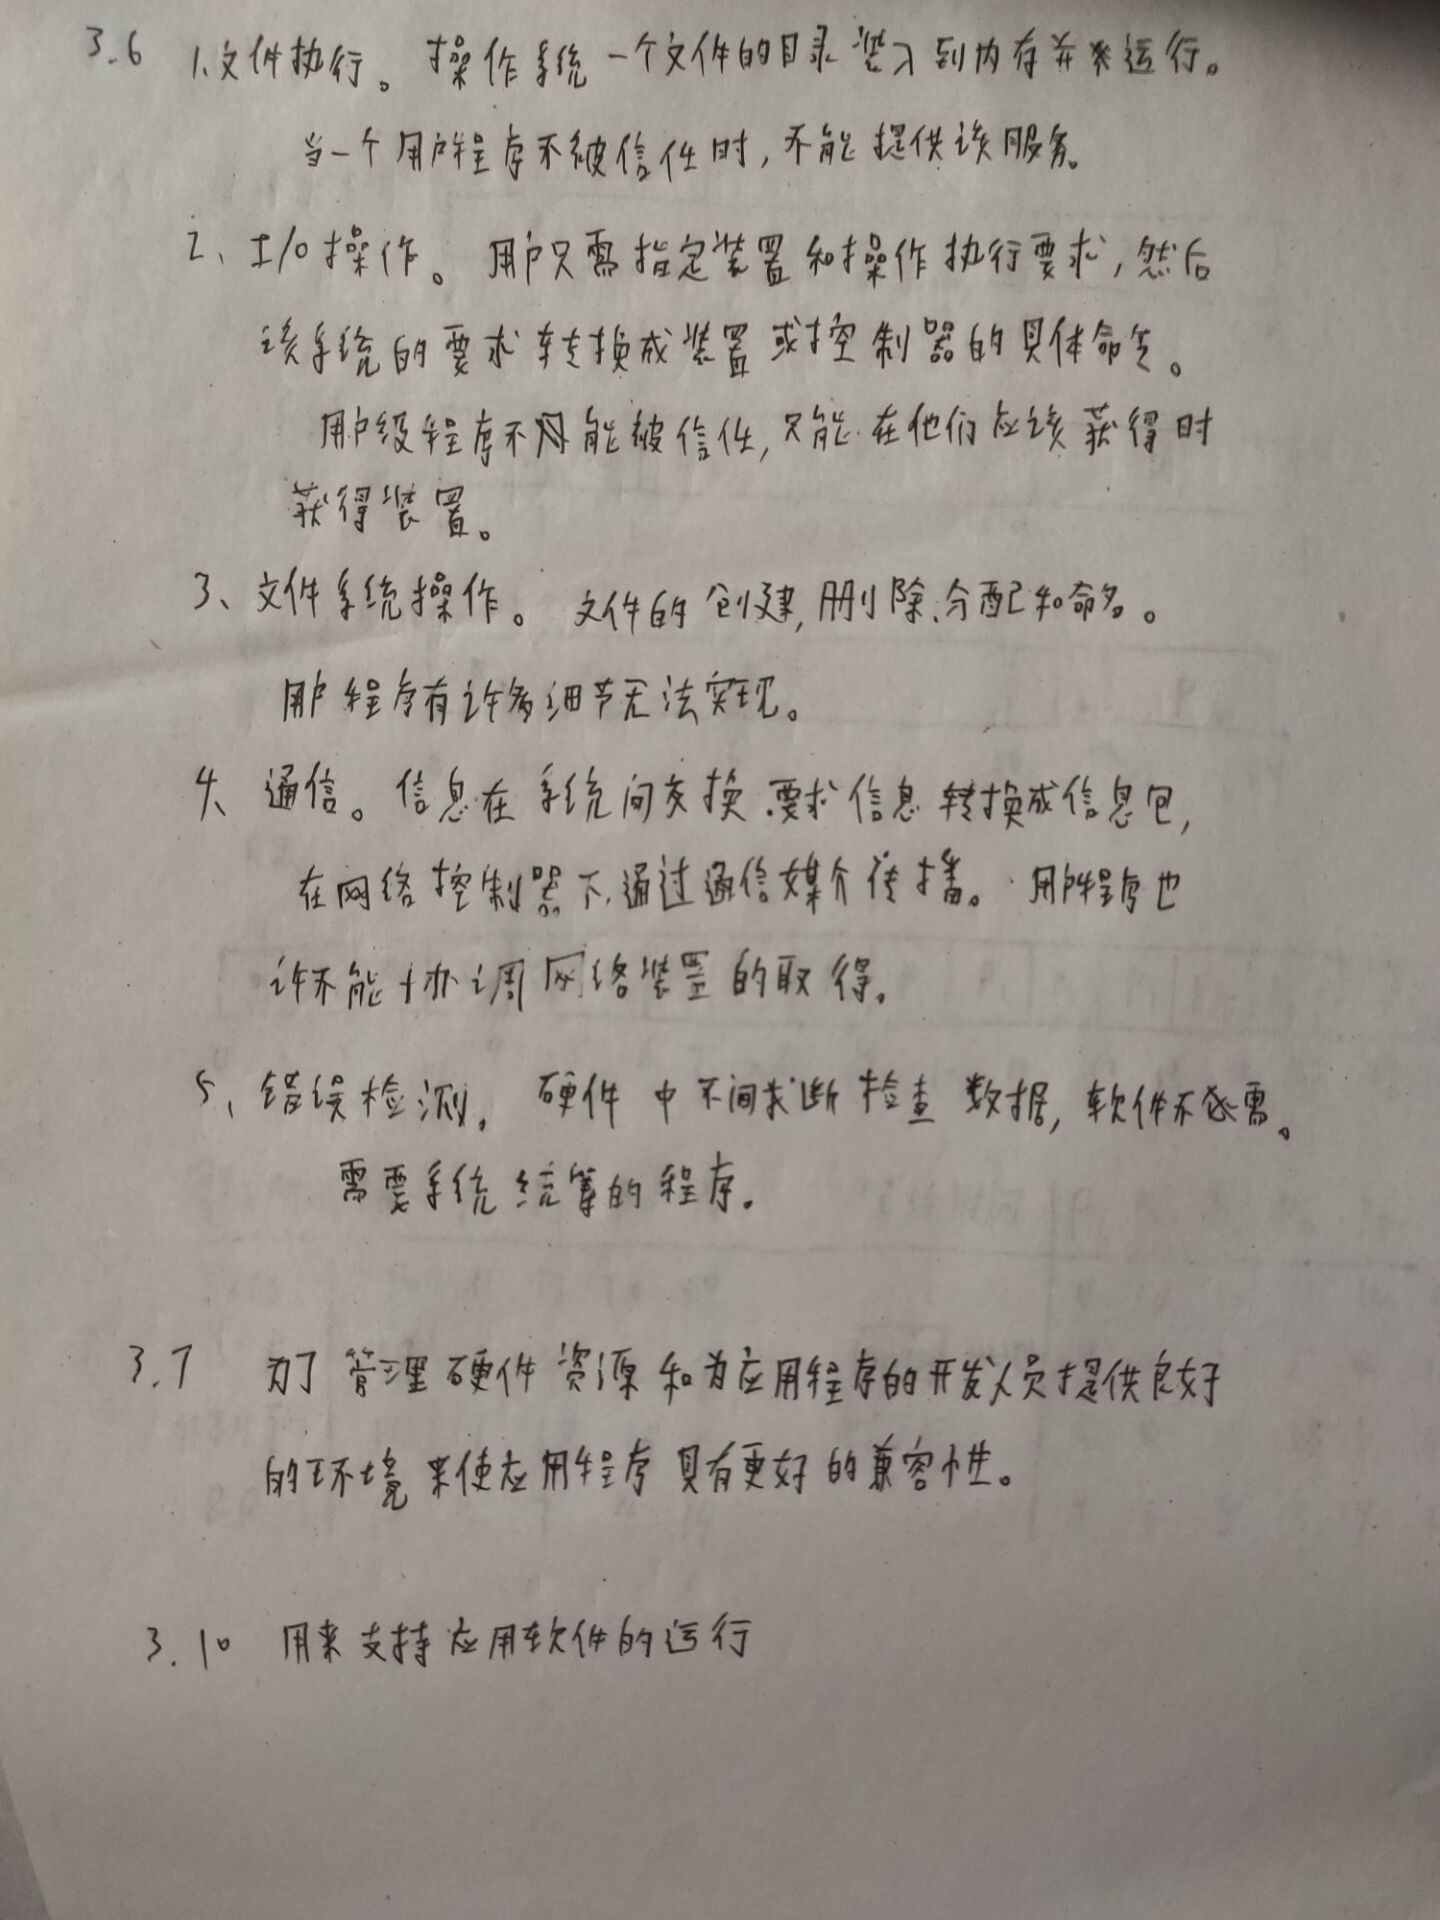 3.6 1、文件执行。操作系统一个文件的目录装入到内存并来运行。
当一个用户程序不被信任时,不能提供该服务。
2、I/O操作。用户只需指定装置和操作执行要求,然后
该系统的要求转换成装置或控制器的具体命令。
用户级程序不能被信任,只能在他们应该获得时
获得装置。
3、文件系统操作。文件的创建,删除、分配和命名。
用户程序有许多细节无法实现。
4、通信。信息在系统间交换.要求信息转换成信息包,
在网络控制器下,通过通信媒介传播。用户程序也
许不能协调网络装置的取得。
5、错误检测。硬件中不间断检查数据,软件不需。
需要系统统筹的程序。
3.7 为了管理硬件资源和为应用程序的开发人员提供良好
的环境来使应用程序具有更好的兼容性。
3.10 用来支持应用软件的运行